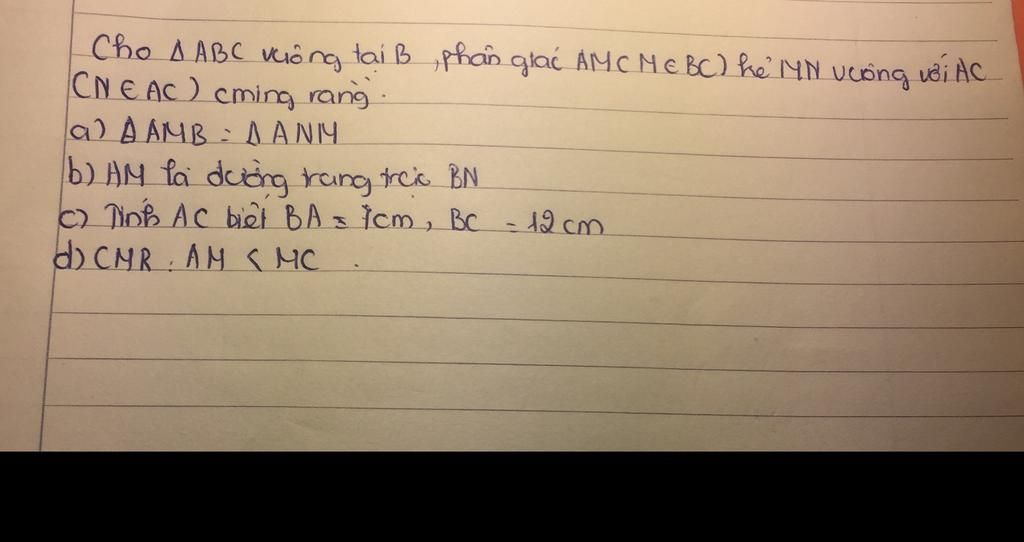 Cho Δ ABC vuông tại B , phân giác AM ( M ∈ BC ) kẻ MN vuông với AC
( N ∈ AC ) cming rằng .
a) Δ AMB = Δ ANM
b) AM là đường trung trực BN
c) Tính AC biết BA = cm , BC = 12 cm
d) CMR : AM < MC .